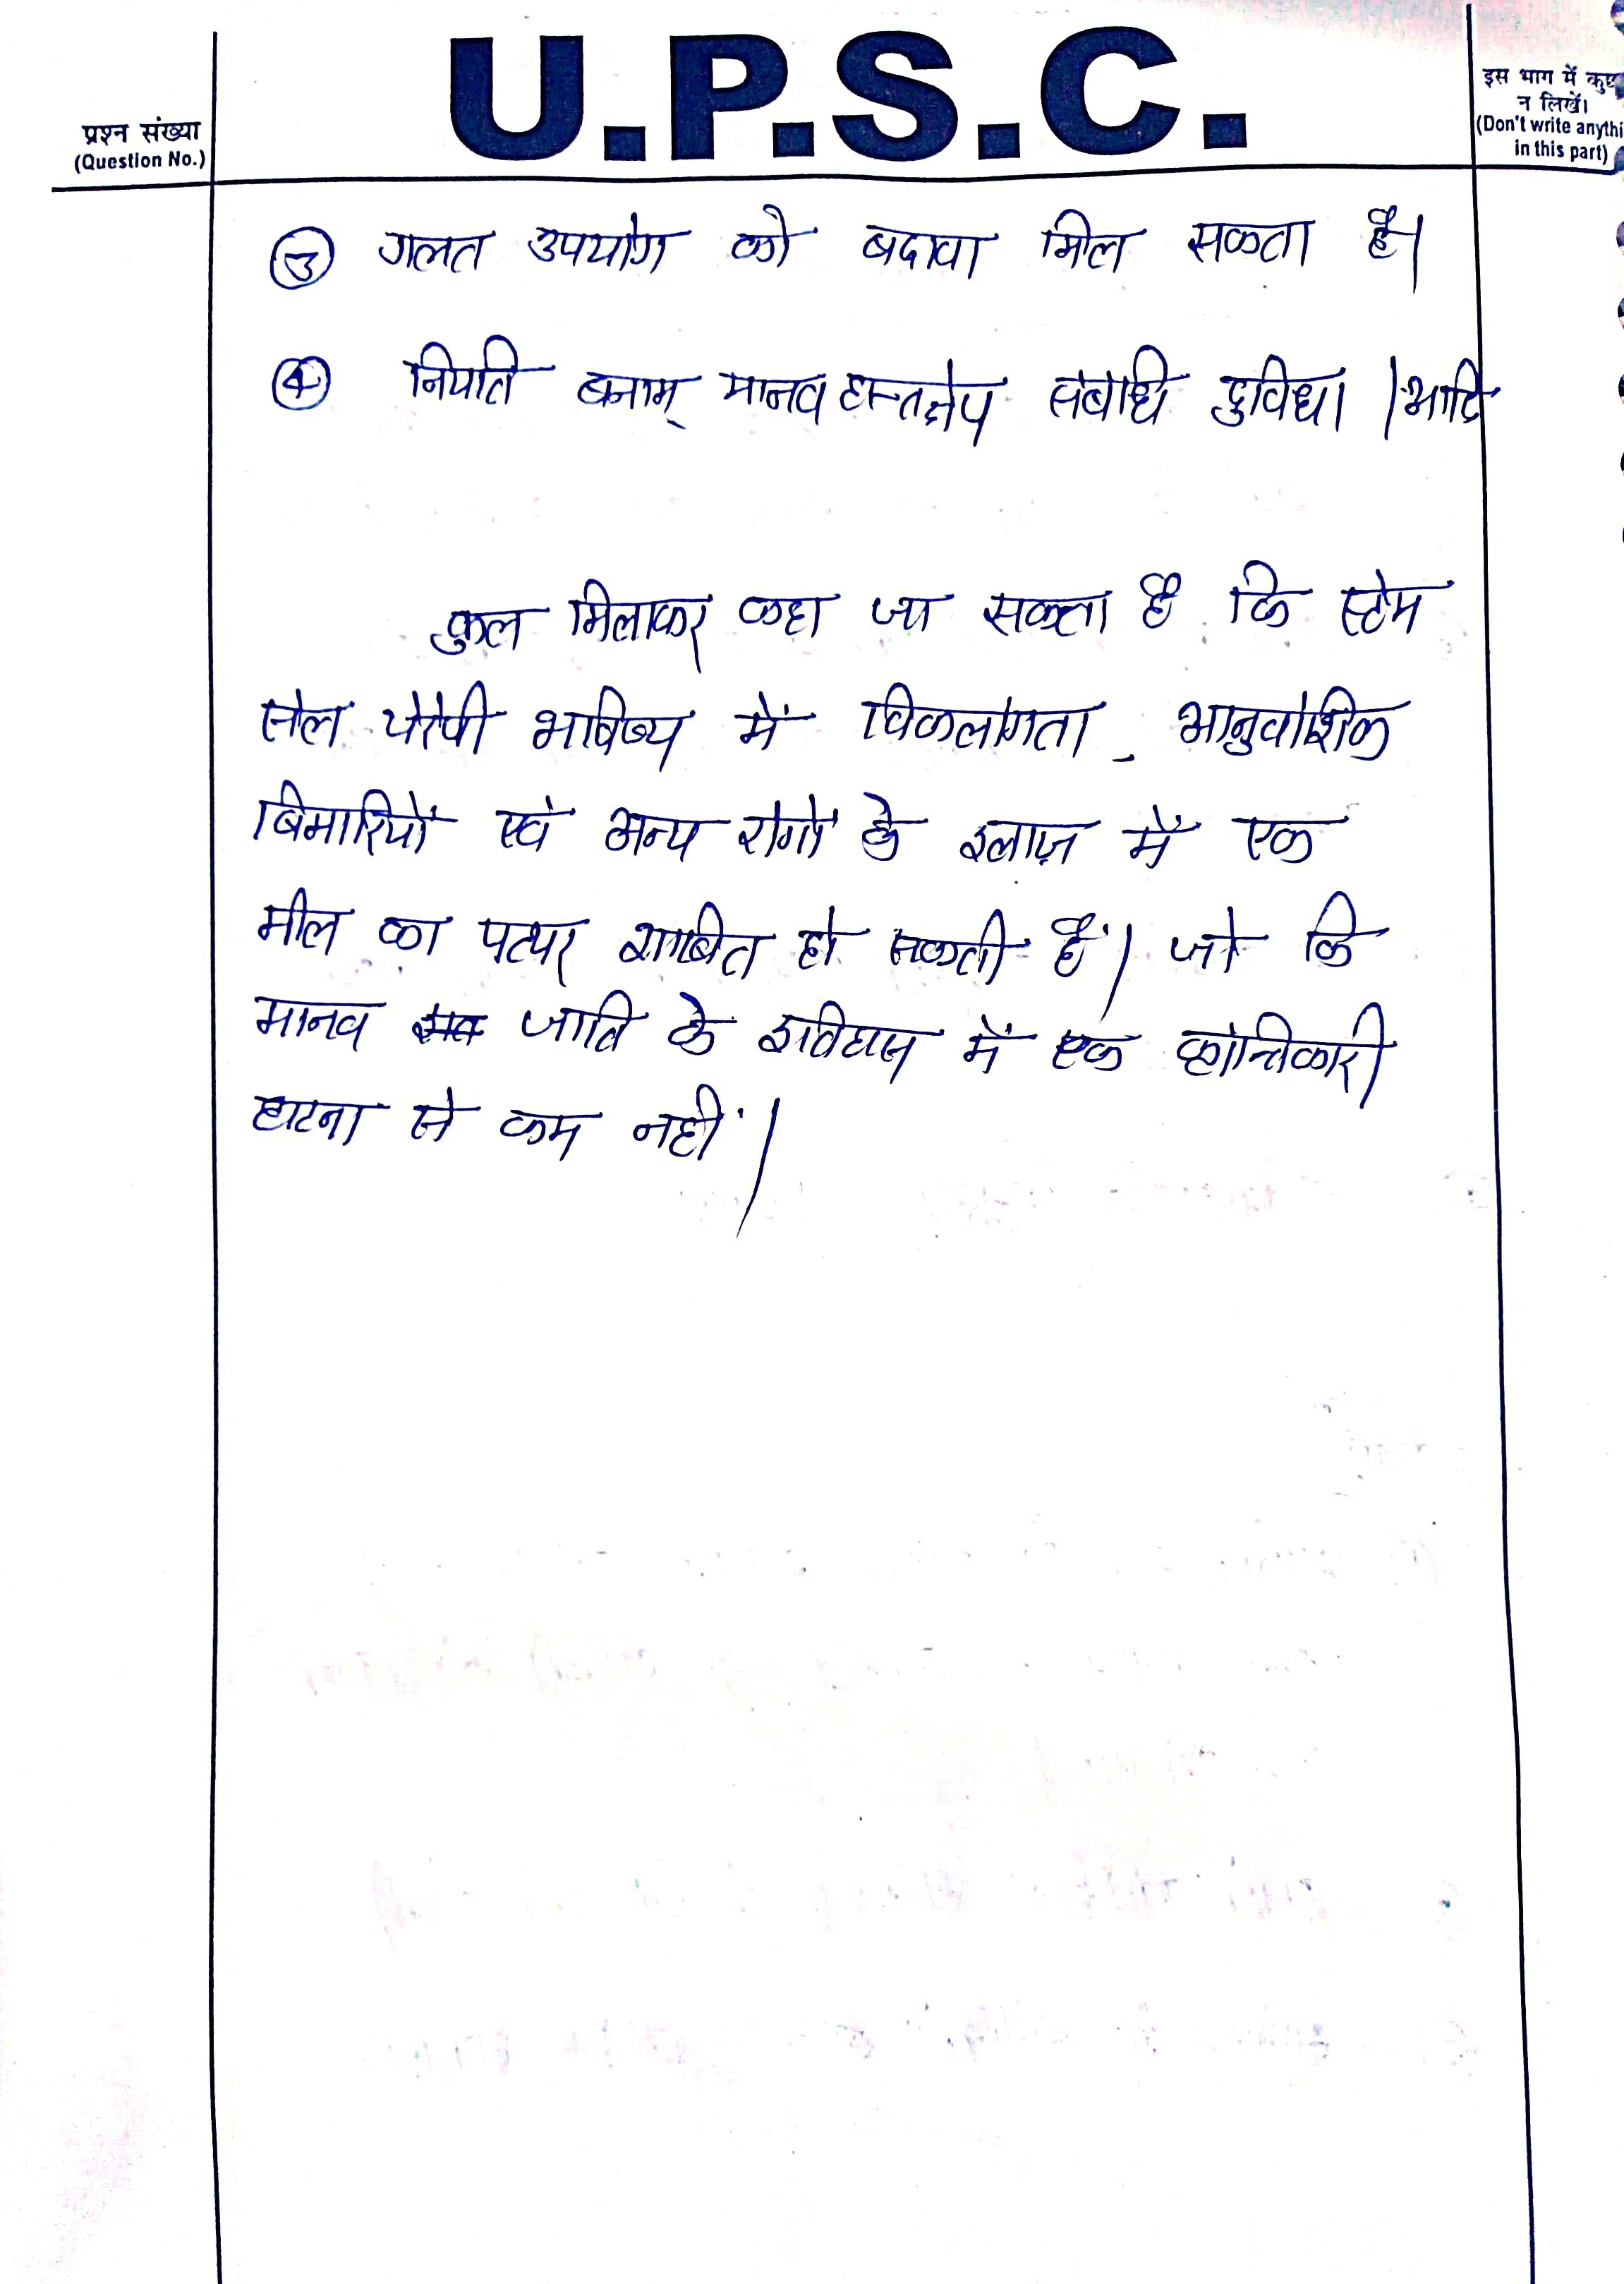 U.P.S.C.
प्रश्न संख्या
(Question No.)
इस भाग में कुछ
न लिखें।
(Don't write anythi
in this part)
③ गलत उपयोग को बढावा मिल सकता है।
④ नियति बनाम् मानव हस्तक्षेप संबंधि दुविधा ।आदि
कुल मिलाकर कहा जा सकता है कि स्टेम
सेल थेरेपी भविष्य में विकलांगता, आनुवांशिक
बिमारियों एवं अन्य रोगों के इलाज़ में एक
मील का पत्थर साबित हो सकती हैं। जो कि
मानव जाति के इतिहास में एक क्रान्तिकारी
घटना से कम नहीं।